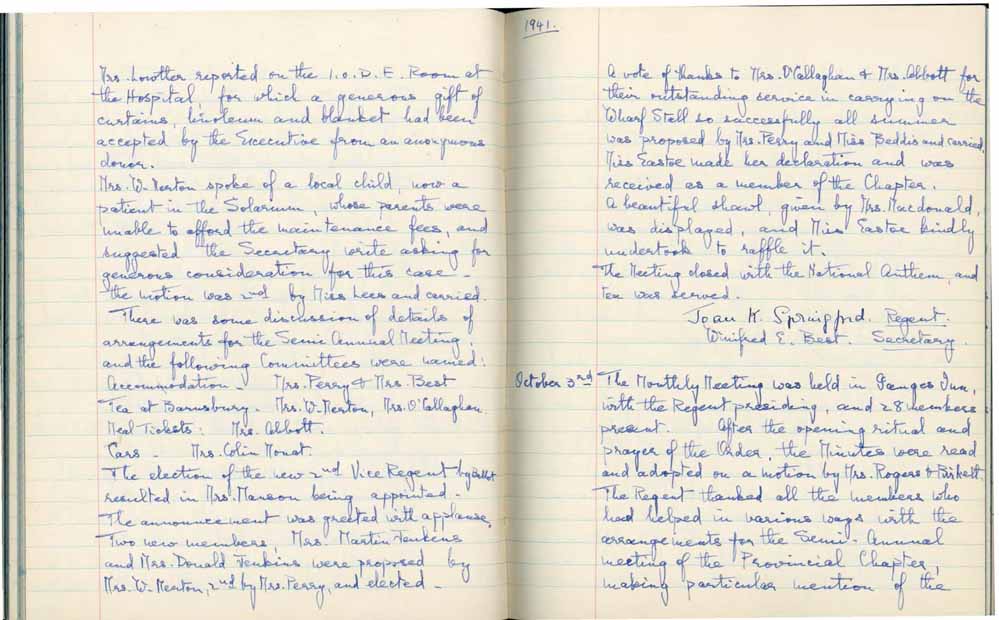 Mrs. Lowther reported on the I.O.D.E. Room at
the Hospital, for which a generous gift of
curtains, linoleum and blanket had been
accepted by the Executive from an anonymous
donor.
Mrs. W. Norton spoke of a local child, now a
patient in the Solarium, whose parents were
unable to afford the maintenance fees, and
suggested the Secretary write asking for
generous consideration for this case -
the motion was 2nd by Miss Lees and carried.
There was some discussion of details of
arrangements for the Semi Annual Meeting,
and the following Committees were named:
Accommodation - Mrs. Perry & Mrs. Best
Tea at Barnsbury. Mrs. W. Norton, Mrs. O'Callaghan
Meal Tickets: Mrs. Abbott.
Cars - Mrs. Colin Mouat.
The election of the new 2nd Vice Regent by Ballot
resulted in Mrs. Manson being appointed -
The announcement was greeted with applause.
Two new members, Mrs. Martin Jenkins
and Mrs. Donald Jenkins were proposed by
Mrs. W. Norton, 2nd by Mrs. Perry, and elected -
1941.
A vote of thanks to Mrs. O'Callaghan & Mrs. Abbott for
their outstanding service in carrying on the
Wharf Stall so successfully all summer
was proposed by Mrs. Perry and Miss Beddis and carried.
Miss Eastoe made her declaration and was
received as a member of the Chapter.
A beautiful shawl, given by Mrs. Macdonald,
was displayed, and Miss Eastoe kindly
undertook to raffle it.
The Meeting closed with the National Anthem and
tea was served.
Joan K. Springford. Regent.
Winifred E. Best. Secretary.
October 3rd The Monthly Meeting was held in Ganges Inn,
with the Regent presiding, and 28 members
present. After the opening ritual and
prayer of the Order, the Minutes were read
and adopted on a motion by Mrs. Rogers & Birkett.
The Regent thanked all the members who
had helped in various ways with the
arrangements for the Semi-Annual
meeting of the Provincial Chapter,
making particular mention of the